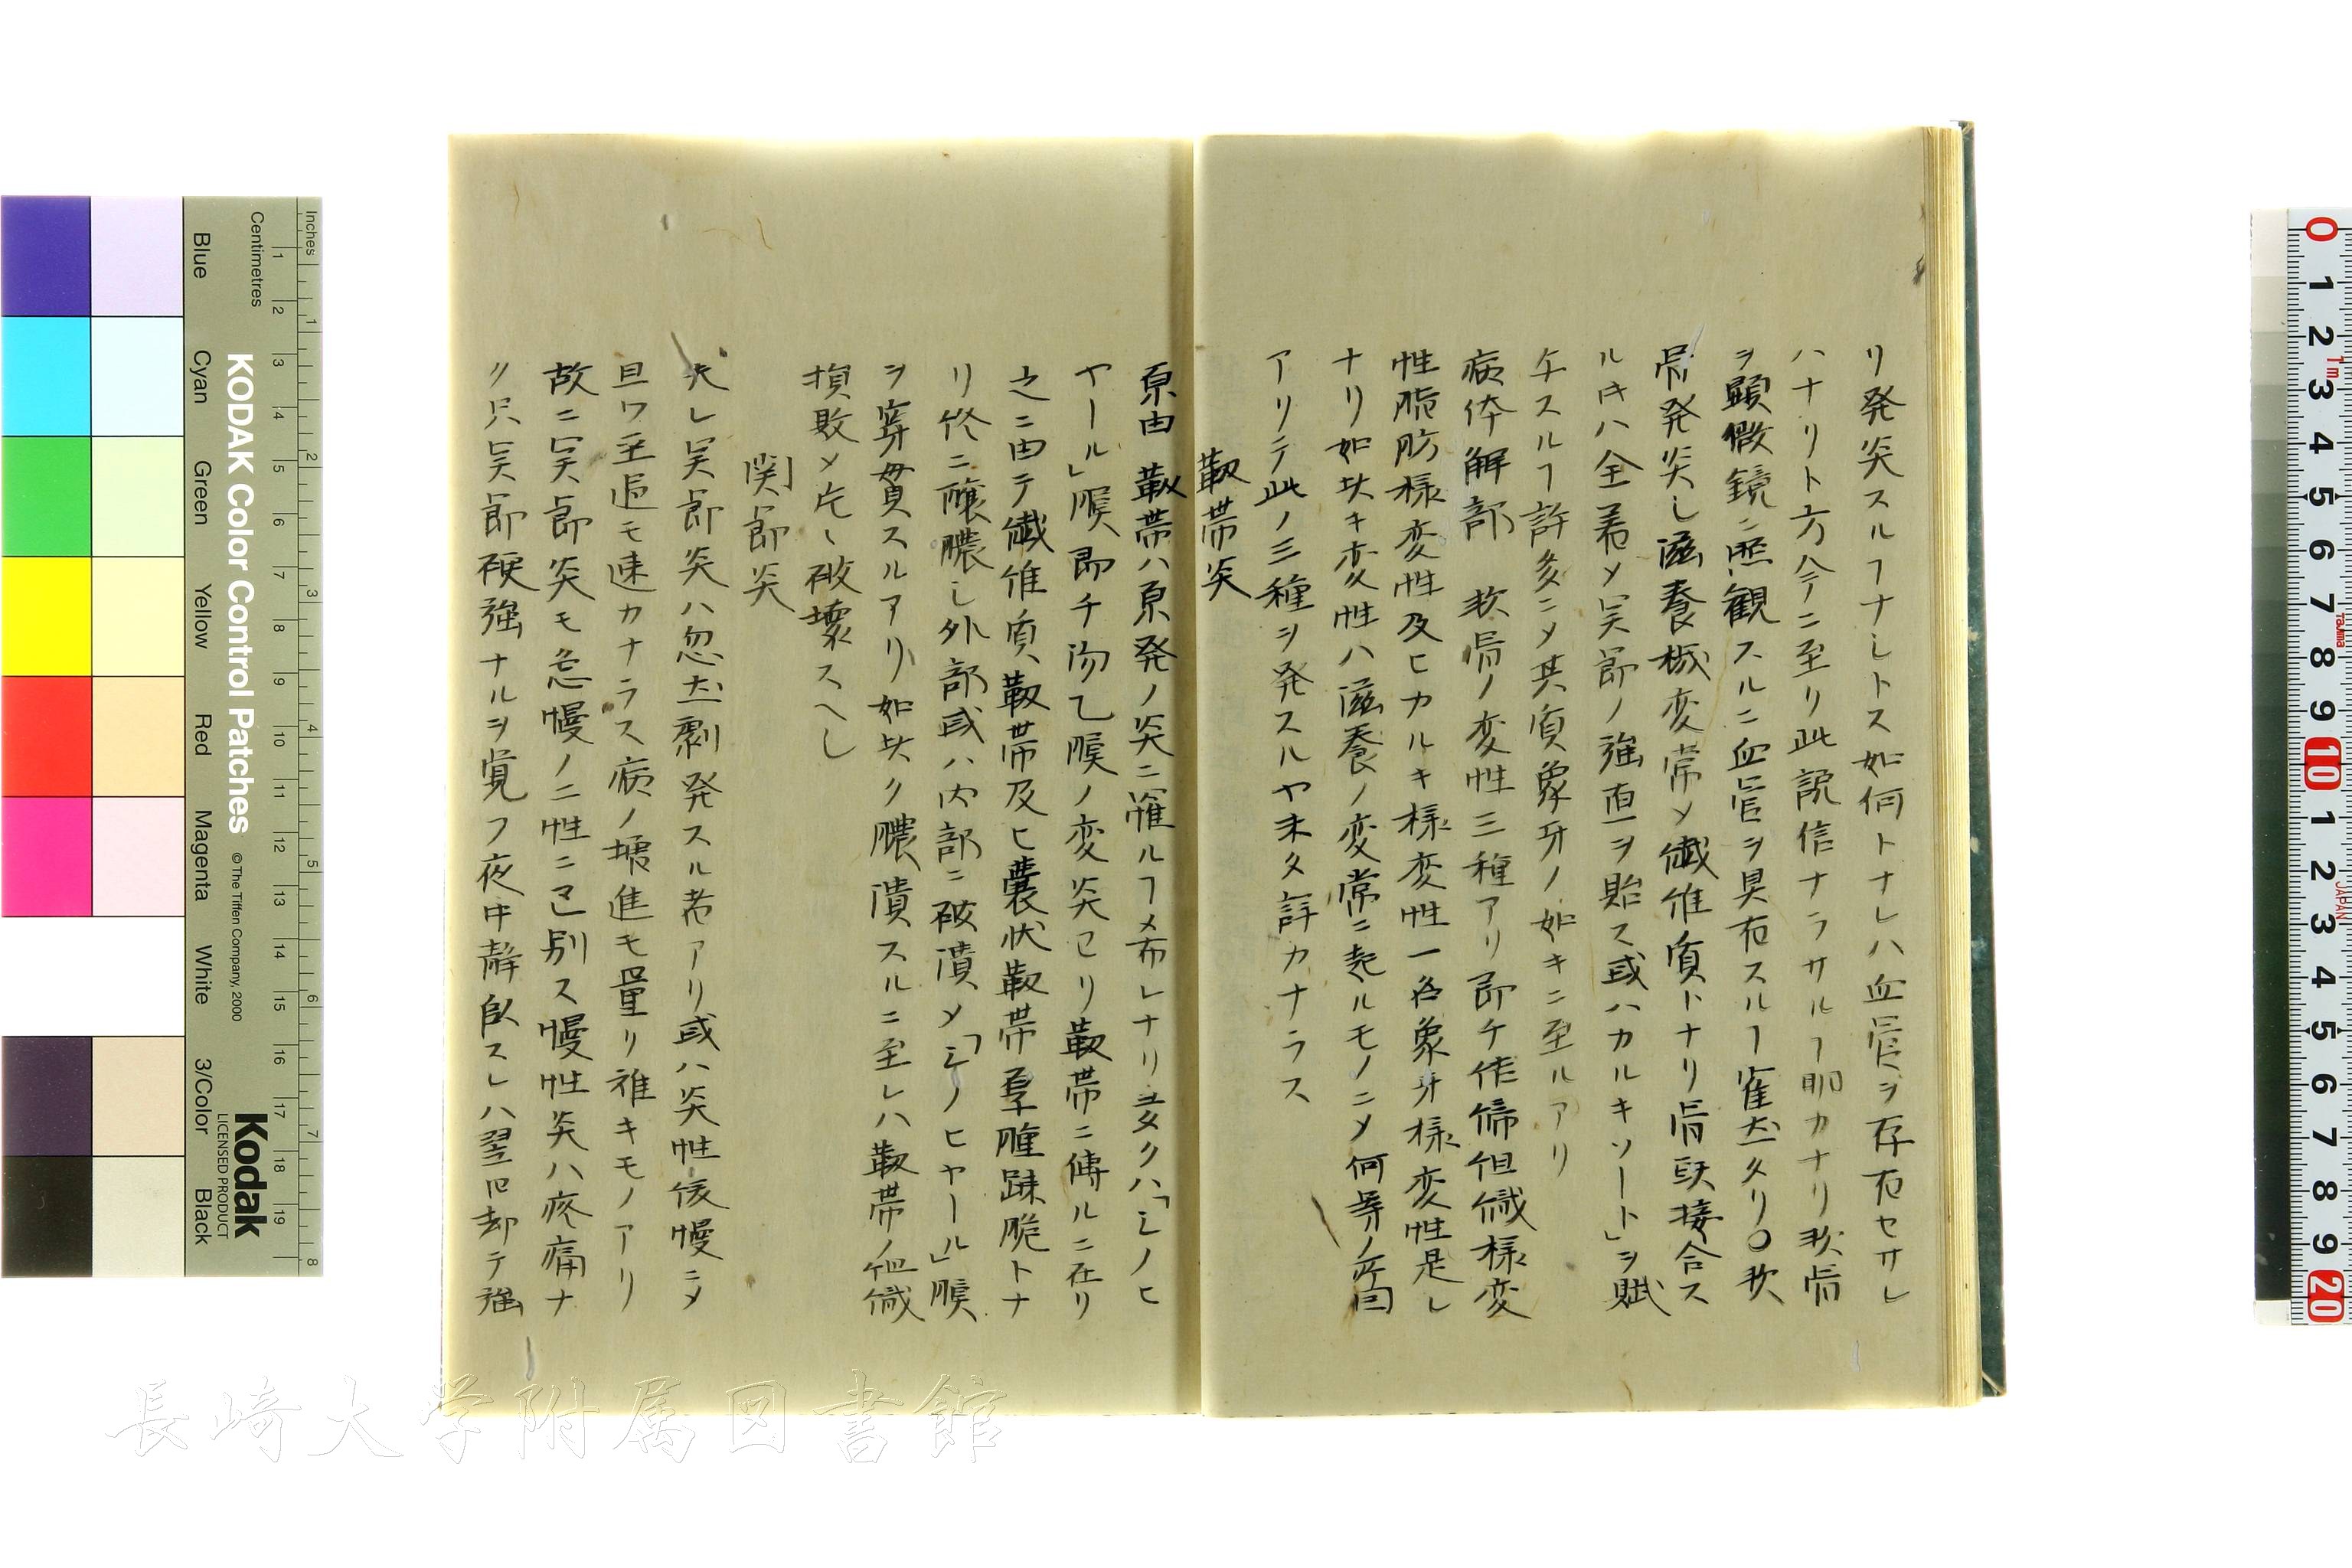 リ発炎スルヿナシトス如何トナレハ血管ヲ存在セサレ
ハナリト方今ニ至リ此説信ナラサルヿ明カナリ軟骨
ヲ顕微鏡ニ照観スルニ血管ヲ具有スルヿ確然タリ〇軟
骨発炎し滋養機変常メ繊維質トナリ骨頭接合ス
ル時ハ全着メ関節ノ強直ヲ貽ス或ハカルキソート」ヲ賦
与スルヿ許多ニメ其質象牙ノ如キニ至ルアリ
病体解剖 軟骨ノ変性三種アリ即チ作体组織様変
性脂肪様変性及ヒカルキ様変性一名象牙様変性是レ
ナリ如此キ変性ハ滋養ノ変常ニ起ルモノニメ何等ノ原因
アリテ此ノ三種ヲ発スルヤ未タ詳カナラス
靱帯炎
原由 靱帯ハ原発ノ炎ニ罹ルヿメ希レナリ多クハ「シノヒ
ヤール」膜即チ滑乙膜ノ変炎ヨリ靱帯ニ傳ルニ在リ
之ニ由テ繊維質靱帯及ヒ嚢状靱帯厚腫踈脆トナ
リ終ニ醸膿し外部或ハ内部ニ破潰メ「シノヒヤール」膜
ヲ穿貫スルアリ如此ク膿潰スルニ至レハ靱帯ノ組織
損敗メ尽ク破壊スヘし
関節炎
夫レ関節炎ハ忽然劇発スル者アリ或ハ炎性緩慢ニメ
且ツ至過モ速カナラス病ノ増進モ量リ難キモノアリ
故ニ関節炎モ急慢ノ二性ニ區別ス慢性炎ハ疼痛ナ
ク只関節硬強ナルヲ覚フ夜中静臥スレハ翌日却テ強
KODAK Color Control Patches
©The Tiffen Company, 2000
Kodak
LICENSED PRODUCT
Inches
1 2 3 4 5 6 7 8
Centimetres
1 2 3 4 5 6 7 8 9 10 11 12 13 14 15 16 17 18 19
Blue
Cyan
Green
Yellow
Red
Magenta
White
3/Color
Black
0 1 2 3 4 5 6 7 8 9 10 1 2 3 4 5 6 7 8 9 20
1m
Tajima
JAPAN
長崎大学附属図書館